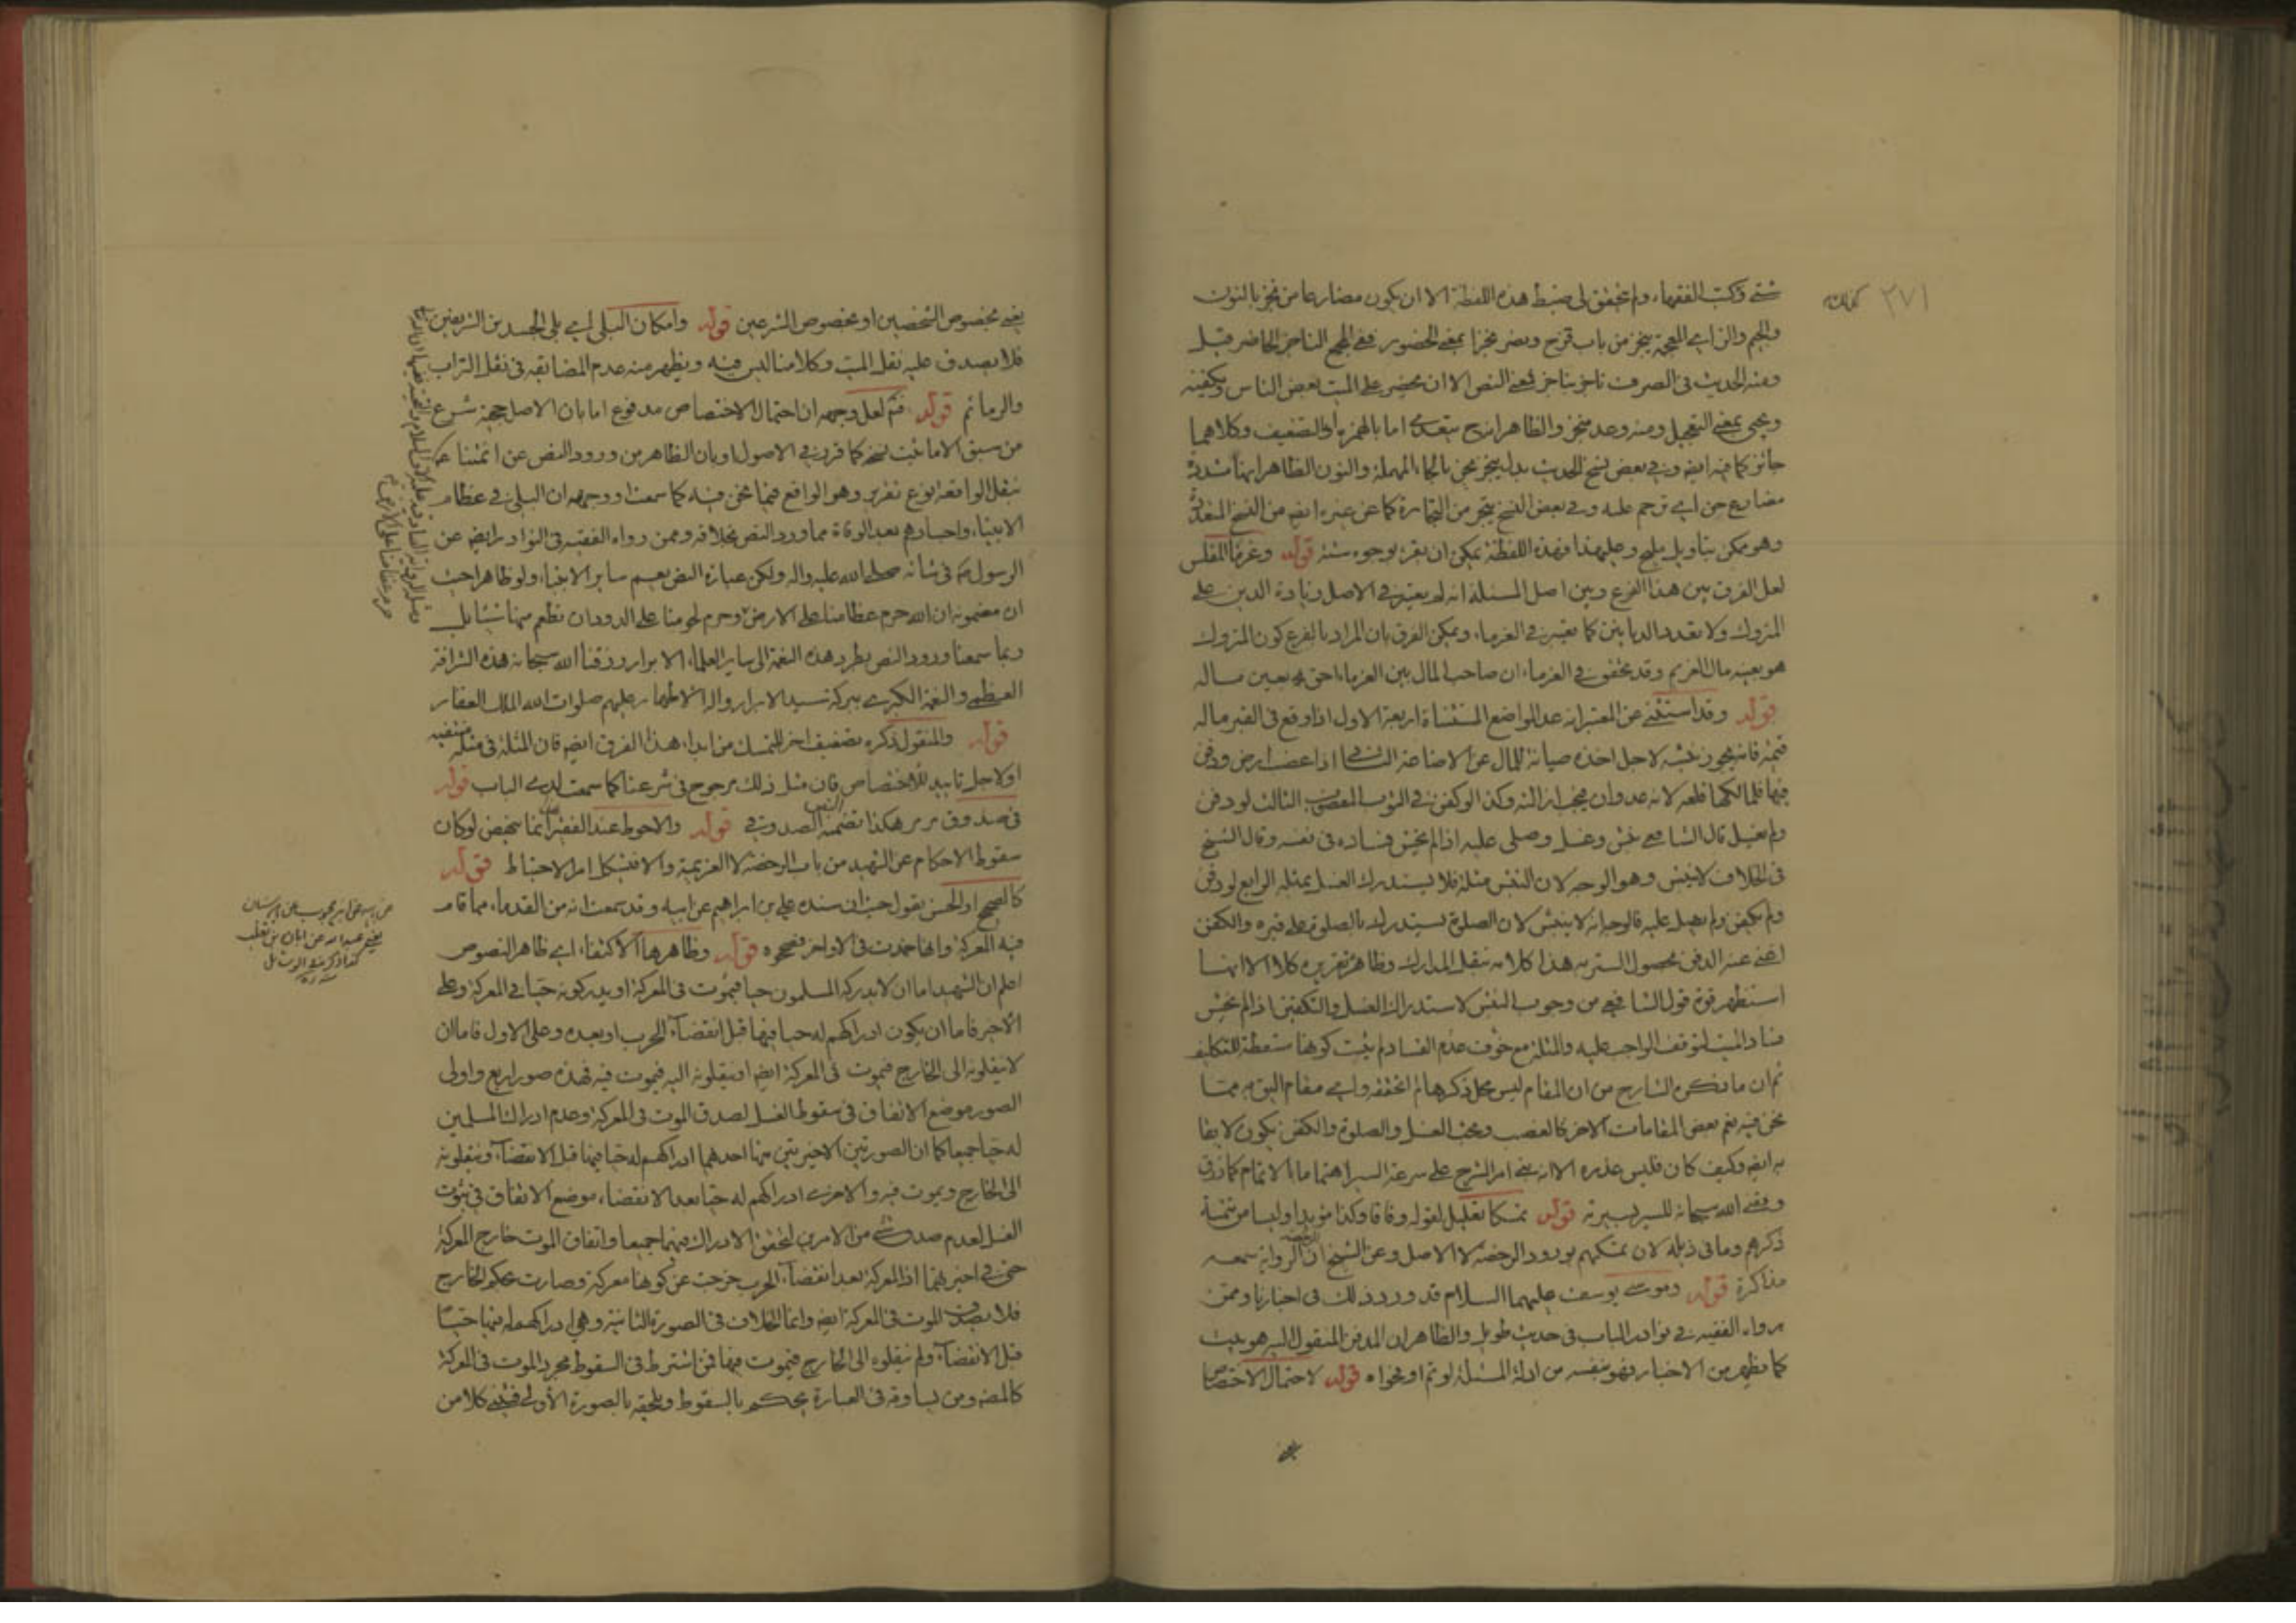 ٢٧١
شتى وكتب الفقهاء ولم يتحقق لى ضبط هذه اللفظة الا ان يكون مضارعا من نجز بالنون
والجيم والزاى المعجمة ينجز من باب فرح ونصر نجزا بمعنى الحضور ففى المجمع الناجز الحاضر قيل
ومنه الحديث فى الصرف ناجز بناجز فمعنى النص الا ان يحضر على الميت بعض الناس ويكفنه
ويجئ بمعنى التعجيل ومنه وعد منجز والظاهر انه ح يتعدى اما بالهمزة أو التضعيف وكلاهما
جائز كما فيه ايضا وفى بعض نسخ الحديث بدل ينجز يحن بالحاء المهملة والنون الظاهر انها مشددة
مضارع حن اى ترحم عليه وفى بعض النسخ يتجر من التجارة كما عن غيره ايضا من النسخ
وهو ممكن بتاويل مليح وعليهذا فهذه اللفظة يمكن ان يقرء بوجوه ستة قوله وغرماء المفلس
لعل الفرق بين هذا الفرع وبين اصل المسئلة انه لم يعتبر فى الاصل زيادة الدين على
المتروك ولا تعدد الديانين كما يعتبر فى الغرماء ويمكن الفرق بان المراد بالفرع كون المتروك
هو بعينه مال الغريم وقد تحقق فى الغرماء ان صاحب المال بين الغرماء احق بعين ماله
قوله وقد استثنى عن المعتبر انه عد المواضع المستثناة اربعة الاول اذا وقع فى القبر ماله
قيمة فانه يجوز نبشه لاجل اخذه صيانة للمال عن الاضاعة الثانى اذا غصب ارض ودفن
فيها فلمالكها قلعه لانه عدوان يجب ازالته وكذا لو كفن فى الثوب المغصوب الثالث لو دفن
ولم يغسل قال الشافعى نبش وغسل وصلى عليه اذا لم يخش فساده فى نفسه وقال الشيخ
فى الخلاف لا ينبش وهو الوجه لان النبش مثلة فلا يستدرك الغسل بمثله الرابع لو دفن
ولم يكفن ولم يصل عليه فالوجه انه لا ينبش لان الصلوة تستدرك بالصلوة على قبره والكفن
اغنى عنه الدفن لحصول الستر به هذا كلامه بنقل المدارك وظاهره تقريره كلا الا انه
استظهر قوة قول الشافعى من وجوب النبش لاستدراك الغسل والتكفين اذا لم يخش
فساد الميت لتوقف الواجب عليه والمثلة مع خوف عدم الفساد لم يثبت كونها مسقطة للتكليف
ثم ان ما ذكره الشارح من ان المقام ليس محل ذكرها لم اتحققه واى مقام اليق به مما
نحن فيه نعم بعض المقامات الاخر كالغصب وبحث الغسل والصلوة والكفن يكون لايقا
به ايضا وكيف كان فليس عذره الا انه بنى امر الشرح على سرعة السير اهتماما بالاتمام كما
وفقنى الله سبحانه للسير بسيرته قوله تمسكا تعليل لقوله وفاقا وكذا مؤيدا وليسا من تتمة
ذكرهم وما فى ذيله لان تمسكهم بورود الرخصة لا الاصل وعن الشيخ ان الرواية سمعه
مذاكرة قوله وموسى يوسف عليهما السلام قد ورد ذلك فى اخبارنا وممن
رواه الفقيه فى نوادر الباب فى حديث طويل والظاهر ان المدفن المنقول اليه هو بيت
كما يظهر من الاخبار فهو بنفسه من ادلة المسئلة لو تم او فحواه قوله لاحتمال الاختصاص
يعنى
يعنى بخصوص الشخصين او بخصوص الشرعين قوله وامكان البلى اى بلى الجسد بن الشريفين
فلا يصدق عليه نقل الميت وكلامنا ليس فيه ويظهر منه عدم المضايقة فى نقل التراب
والرمائم قوله فتم لعل وجهه ان احتمال الاختصاص مدفوع اما بان الاصل حجية شرع
من سبق الا ما ثبت نسخه كما قرر فى الاصول او بان الظاهر من ورود النص عن ائمتنا
بنقل الواقعة نوع تقرير وهو الواقع فيما نحن فيه كما سمعت او وجهه ان البلى فى عظام
الانبياء واجسادهم بعد الوفاة مما ورد النص بخلافه وممن رواه الفقيه فى النوادر ايضا عن
الرسول فى شانه صلى الله عليه واله ولكن عبارة النص يعم ساير الانبياء ولو ظاهرا حيث
ان مضمونه ان الله حرم عظامنا على الارض وحرم لحومنا على الدود ان تطعم منها شيئا بل
ربما سمعنا ورود النص بطرد هذه النعمة الى ساير العلماء الابرار رزقنا الله سبحانه هذه الشرافة
العظمى والنعمة الكبرى ببركة سيد الابرار واله الاطهار عليهم صلوات الله الملك الغفار
قوله والمنقول ذكره تضعيف اخر للتمسك من ابداء هذا الفرق ايضا فان المثلة فى مثله منتفية
او لاجل تاييد للاختصاص فان مثل ذلك مرجوح فى شرعنا كما سمعت لدى الباب قوله
فى صندوق مرمر هكذا تضمنه النص الصدوق فى قوله والاحوط عند الفقير انما يتمحض لو كان
سقوط الاحكام عن الشهيد من باب الرخصة لا العزيمة والا فيشكل امر الاحتياط قوله
كالصحيح او الحسن يقول حيث ان سنده على بن ابراهيم عن ابيه وقد سمعت انه من القدماء مما قام
فيه المعركة وانها خمدت فى الاواخر فصححوه قوله وظاهرها الاكتفاء اى ظاهر النصوص
اعلم ان الشهيد اما ان لا يدركه المسلمون حيا فيموت فى المعركة او يدركونه حيا فى المعركة وعلى
الاخير فاما ان يكون ادراكهم له حيا فيها قبل انقضاء الحرب او بعده وعلى الاول فاما ان
لا ينقلونه الى الخارج فيموت فى المعركة ايضا او ينقلونه اليه فيموت فيه فهذه صور اربع واولى
الصور موضع الاتفاق فى سقوط الغسل لصدق الموت فى المعركة وعدم ادراك المسلمين
له حيا جميعا كما ان الصورتين الاخيرتين منها احدهما ادراكهم له حيا فيها قبل الانقضاء وينقلونه
الى الخارج ويموت فيه والاخرى ادراكهم له حيا بعد الانقضاء موضع الاتفاق فى ثبوت
الغسل لعدم صدق شئ من الامرين لتحقق الادراك فيهما جميعا واتفاق الموت خارج المعركة
حتى فى اخيرتهما اذ المعركة بعد انقضاء الحرب خرجت عن كونها معركة وصارت بحكم الخارج
فلا يصدق الموت فى المعركة ايضا وانما الخلاف فى الصورة الثانية وهى ادراكهم له فيها حيا
قبل الانقضاء ولم ينقلوه الى الخارج فيموت فيها فمن اشترط فى السقوط مجرد الموت فى المعركة
كالمصنف ومن يساوقه فى العبارة يحكم بالسقوط ويلحقه بالصورة الأولى فيبقى كلا من
حرم عظامنا على الارض